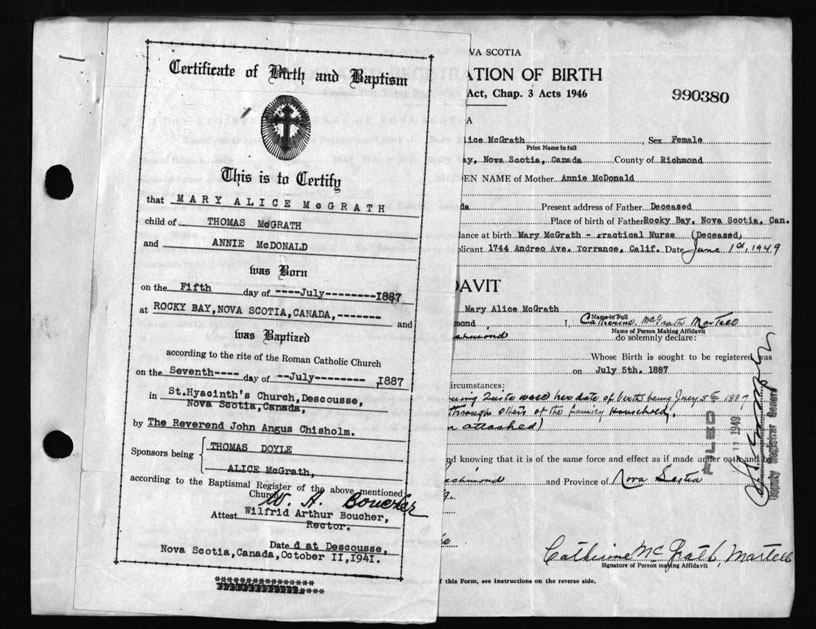 Certificate of Birth and Baptism
This is to Certify
that MARY ALICE McGRATH
child of THOMAS McGRATH
and ANNIE McDONALD
was Born
on the Fifth day of ----July--------1887
at ROCKY BAY,NOVA SCOTIA,CANADA,------- and
was Baptized
according to the rite of the Roman Catholic Church
on the Seventh---- day of --July--------- 1887
in St.Hyacinth's Church,Descousse,
Nova Scotia,Canada,
by The Reverend John Angus Chisholm.
Sponsors being THOMAS DOYLE
ALICE McGrath,
according to the Baptismal Register of the above mentioned
Church
W. A. Boucher
Attest Wilfrid Arthur Boucher,
Rector.
Dated at Descousse,
Nova Scotia,Canada,October 11,1941.
VA SCOTIA
ATION OF BIRTH
Act, Chap. 3 Acts 1946
990380
lice McGrath, Sex Female
Print Name in full
ay, Nova Scotia, Canada County of Richmond
EN NAME of Mother Annie McDonald
da Present address of Father Deceased
Place of birth of Father Rocky Bay, Nova Scotia, Can.
ance at birth Mary McGrath - Practical Nurse (Deceased)
plicant 1744 Andreo Ave. Torrance, Calif. Date June 1st, 1949
DAVIT
Mary Alice McGrath
Name in Full
mond I, Catherine McGrath Martell
Name of Person Making Affidavit
chmond do solemnly declare:
Whose Birth is sought to be registered was
on July 5th. 1887
ircumstances:
her date of birth being July 5th 1887
through others of the family Household.
attached)
nd knowing that it is of the same force and effect as if made under oath and
ichmond and Province of Nova Scotia
Catherine McGrath, Martell
Signature of Person making Affidavit
of this Form, see instructions on the reverse side.
FILED
11 1949
Deputy Registrar General